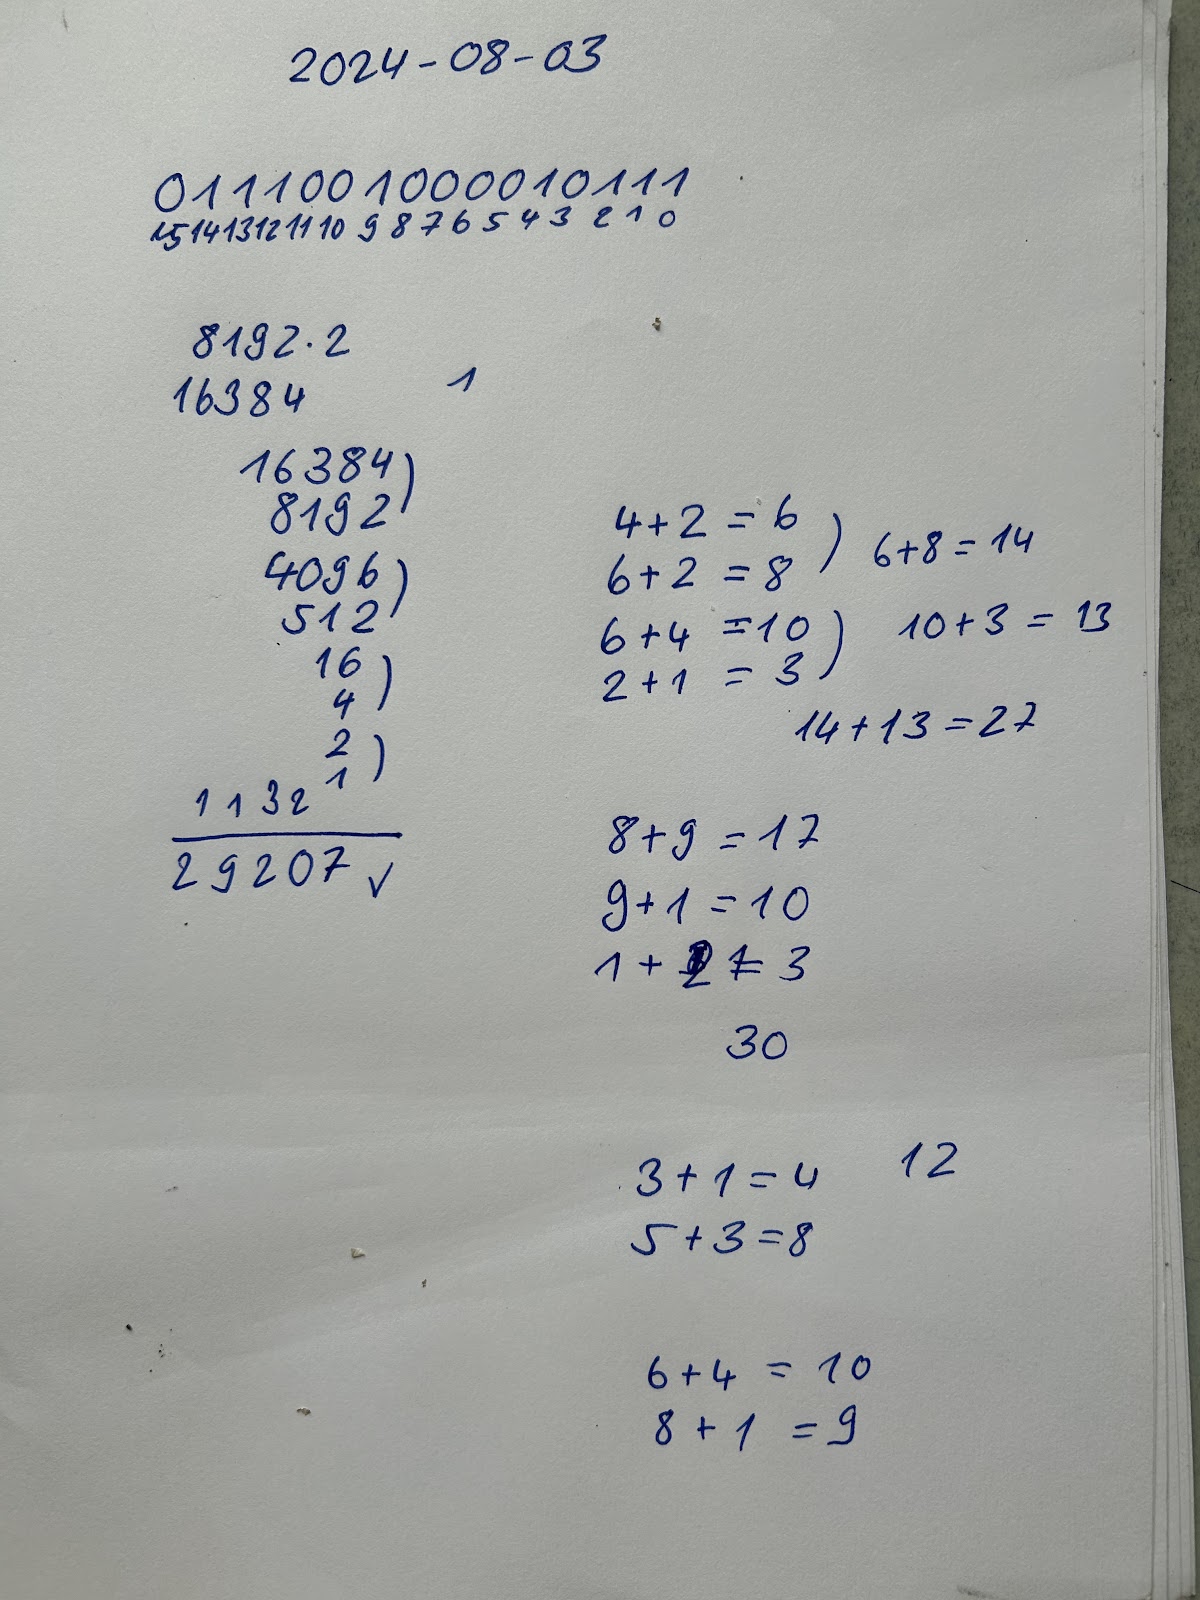 2024-08-03
0111001000010111
15 14 13 12 11 10 9 8 7 6 5 4 3 2 1 0
8192·2
16384
1
16384)
8192
4096)
512
16)
4
2)
1
1132
29207 ✓
4+2 = 6
6+2 = 8 ) 6+8=14
6+4 =10
2+1 = 3 ) 10+3 = 13
14+13=27
8+9=17
9+1=10
1+2 = 3
30
3+1=4 12
5+3=8
6+4 = 10
8+1 =9